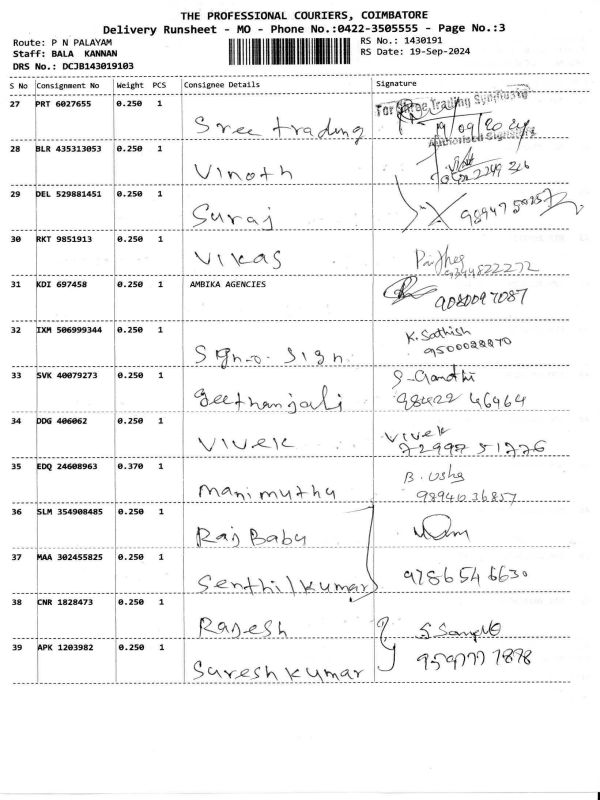 THE PROFESSIONAL COURIERS, COIMBATORE
Delivery Runsheet - MO - Phone No.:0422-3505555 - Page No.:3
Route: P N PALAYAM
RS No.: 1430191
Staff: BALA KANNAN
RS Date: 19-Sep-2024
DRS No.: DCJB143019103
S No Consignment No Weight PCS Consignee Details Signature
27 PRT 6027655 0.250 1 Sree trading
For Shree Trading Syndicate
19/09/2024
Authorised Signatory
28 BLR 435313053 0.250 1 Vinoth
29 DEL 529881451 0.250 1 Suraj
30 RKT 9851913 0.250 1 Vikas
31 KDI 697458 0.250 1 AMBIKA AGENCIES 9080097087
32 IXM 506999344 0.250 1 Sign-o-Sign
K. Sathish
33 SVK 40079273 0.250 1 Geethanjali
S-Gandhi
98422 46464
34 DDG 406062 0.250 1 Vivek
Vivek
72997 51776
35 EDQ 24608963 0.370 1 Manimuthu
B. Usha
98940 36857
36 SLM 354908485 0.250 1 Raj Babu
37 MAA 302455825 0.250 1 Senthilkumar 9786546630
38 CNR 1828473 0.250 1 Rajesh
39 APK 1203982 0.250 1 Sureshkumar